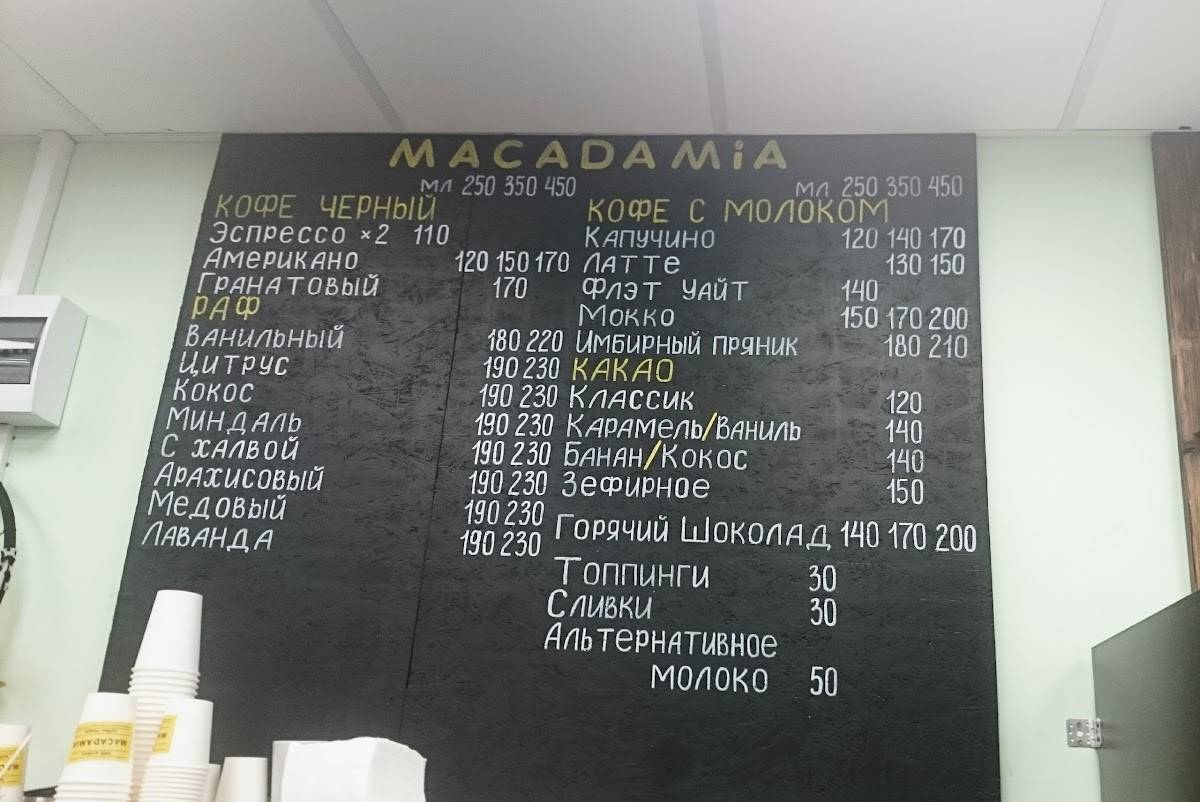 MACADAMiA
мл 250 350 450
КОФЕ ЧЕРНЫЙ
Эспрессо ×2 110
Американо 120 150 170
Гранатовый 170
РАФ
Ванильный 180 220
Цитрус 190 230
Кокос 190 230
Миндаль 190 230
С халвой 190 230
Арахисовый 190 230
Медовый 190 230
Лаванда 190 230
мл 250 350 450
КОФЕ С МОЛОКОМ
Капучино 120 140 170
Латте 130 150
Флэт Уайт 140
Мокко 150 170 200
Имбирный пряник 180 210
КАКАО
Классик 120
Карамель/Ваниль 140
Банан/Кокос 140
Зефирное 150
Горячий Шоколад 140 170 200
Топпинги 30
Сливки 30
Альтернативное
молоко 50
MACADAMIA